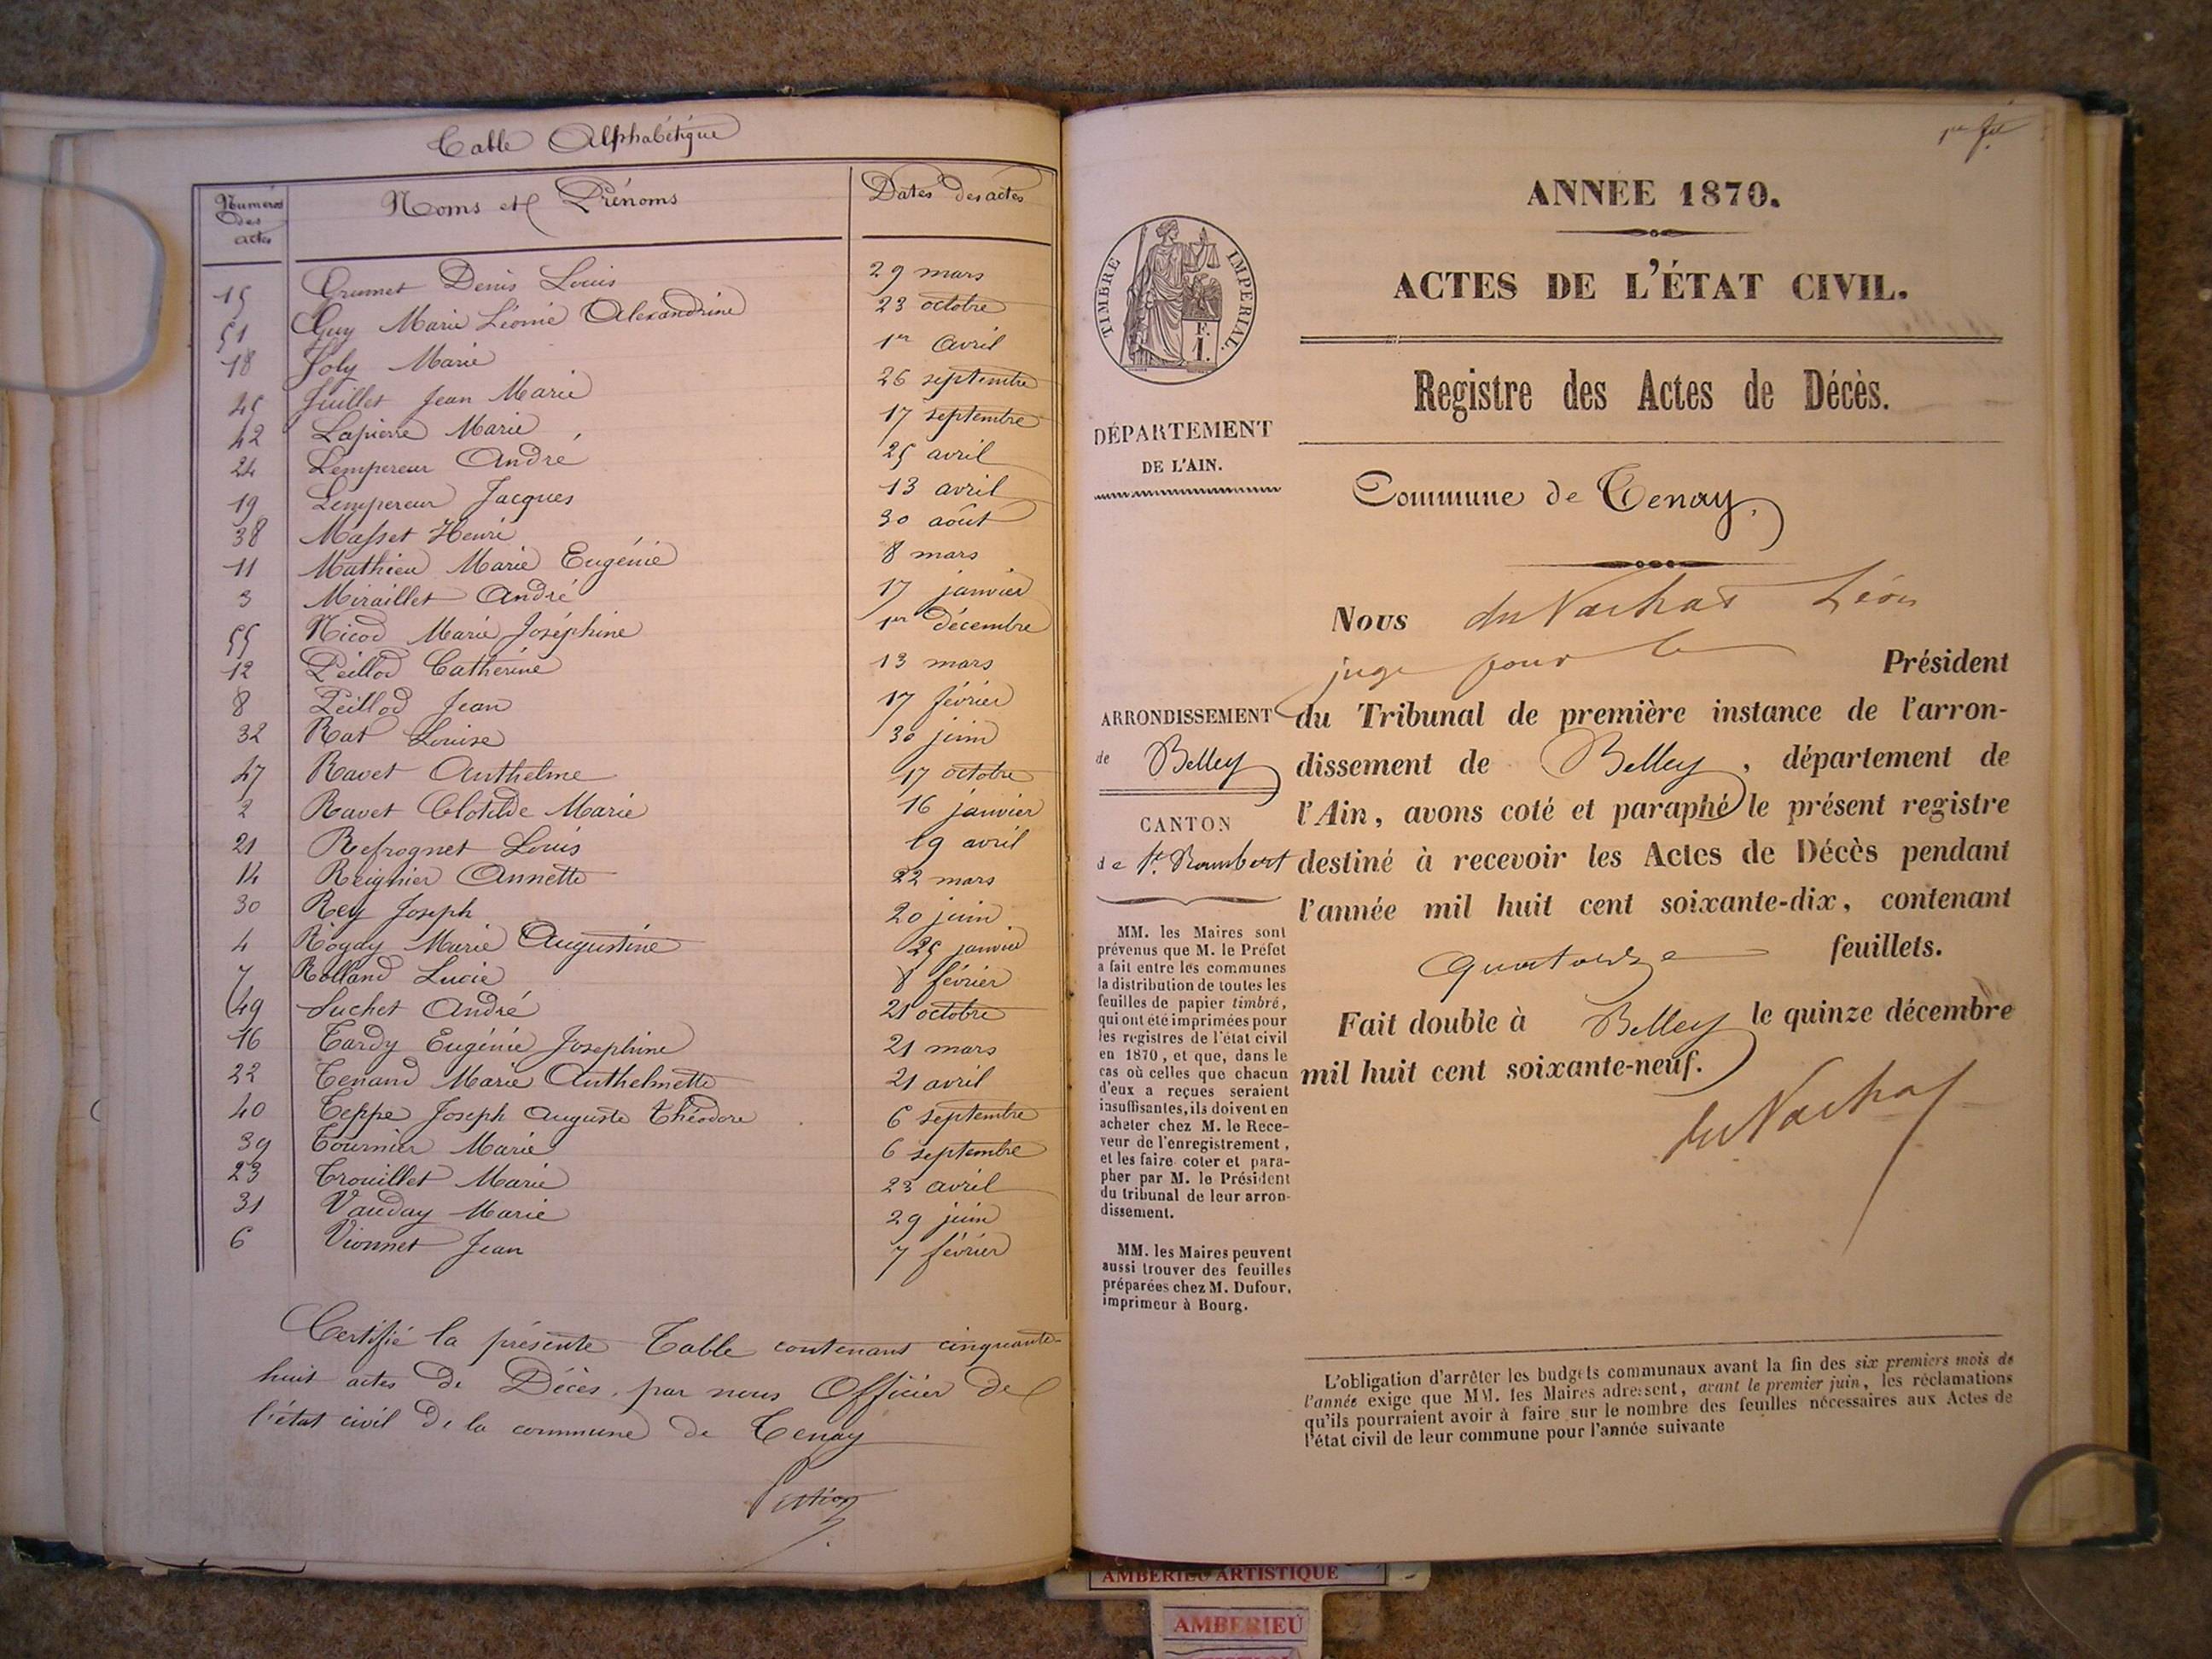 Table Alphabétique
Numéros des actes
Noms et Prénoms
Dates des actes
15 Grumet Denis Louis 29 mars
51 Guy Marie Léonie Alexandrine 23 octobre
18 Joly Marie 1er avril
45 Juillet Jean Marie 26 septembre
42 Lapierre Marie 17 septembre
24 Lempereur André 25 avril
19 Lempereur Jacques 13 avril
38 Masset Henri 30 août
11 Mathieu Marie Eugénie 8 mars
3 Miraillet André 17 janvier
55 Nicod Marie Joséphine 1er décembre
12 Peillod Catherine 13 mars
8 Peillod Jean 17 février
32 Rat Louise 30 juin
47 Ravet Anthelme 17 octobre
2 Ravet Clotilde Marie 16 janvier
21 Refrognet Louis 19 avril
14 Reignier Annette 22 mars
30 Rey Joseph 20 juin
4 Rogay Marie Augustine 25 janvier
7 Rolland Lucie 8 février
49 Suchet André 21 octobre
16 Tardy Eugénie Josephine 21 mars
22 Tenand Marie Anthelmette 21 avril
40 Teppe Joseph Auguste Théodore 6 septembre
39 Tournier Marie 6 septembre
23 Trouillet Marie 23 avril
31 Vauday Marie 29 juin
6 Vionnet Jean 7 février
Certifié la présente Table contenant cinquante-
huit actes de Décès, par nous Officier de
l'état civil de la commune de Tenay
1er fet
ANNÉE 1870.
ACTES DE L'ÉTAT CIVIL.
Registre des Actes de Décès.
Commune de Tenay.
TIMBRE IMPERIAL.
F.
1.
DÉPARTEMENT
DE L'AIN.
ARRONDISSEMENT
de Belley
CANTON
de St. Rambert
MM. les Maires sont
prévenus que M. le Préfet
a fait entre les communes
la distribution de toutes les
feuilles de papier timbré,
qui ont été imprimées pour
les registres de l'état civil
en 1870, et que, dans le
cas où celles que chacun
d'eux a reçues seraient
insuffisantes, ils doivent en
acheter chez M. le Rece-
veur de l'enregistrement,
et les faire coter et para-
pher par M. le Président
du tribunal de leur arron-
dissement.
MM. les Maires peuvent
aussi trouver des feuilles
préparées chez M. Dufour,
imprimeur à Bourg.
Nous du Nachat Léon
juge pour le Président
du Tribunal de première instance de l'arron-
dissement de Belley, département de
l'Ain, avons coté et paraphé le présent registre
destiné à recevoir les Actes de Décès pendant
l'année mil huit cent soixante-dix, contenant
quatorze feuillets.
Fait double à Belley le quinze décembre
mil huit cent soixante-neuf.
du Nachat
L'obligation d'arrêter les budgets communaux avant la fin des six premiers mois de
l'année exige que MM. les Maires adressent, avant le premier juin, les réclamations
qu'ils pourraient avoir à faire sur le nombre des feuilles nécessaires aux Actes de
l'état civil de leur commune pour l'année suivante
AMBERIEU ARTISTIQUE
AMBERIEU